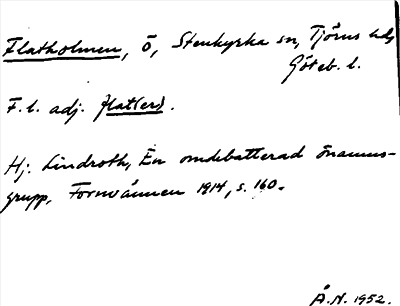 Flatholmen, ö, Stenkyrka sn, Tjörns hd,
Göteb. l.
F.l. adj. flat(er).
Hj. Lindroth, En omdebatterad önamns-
grupp, Fornvännen 1914, s. 160.
Å.N. 1952.